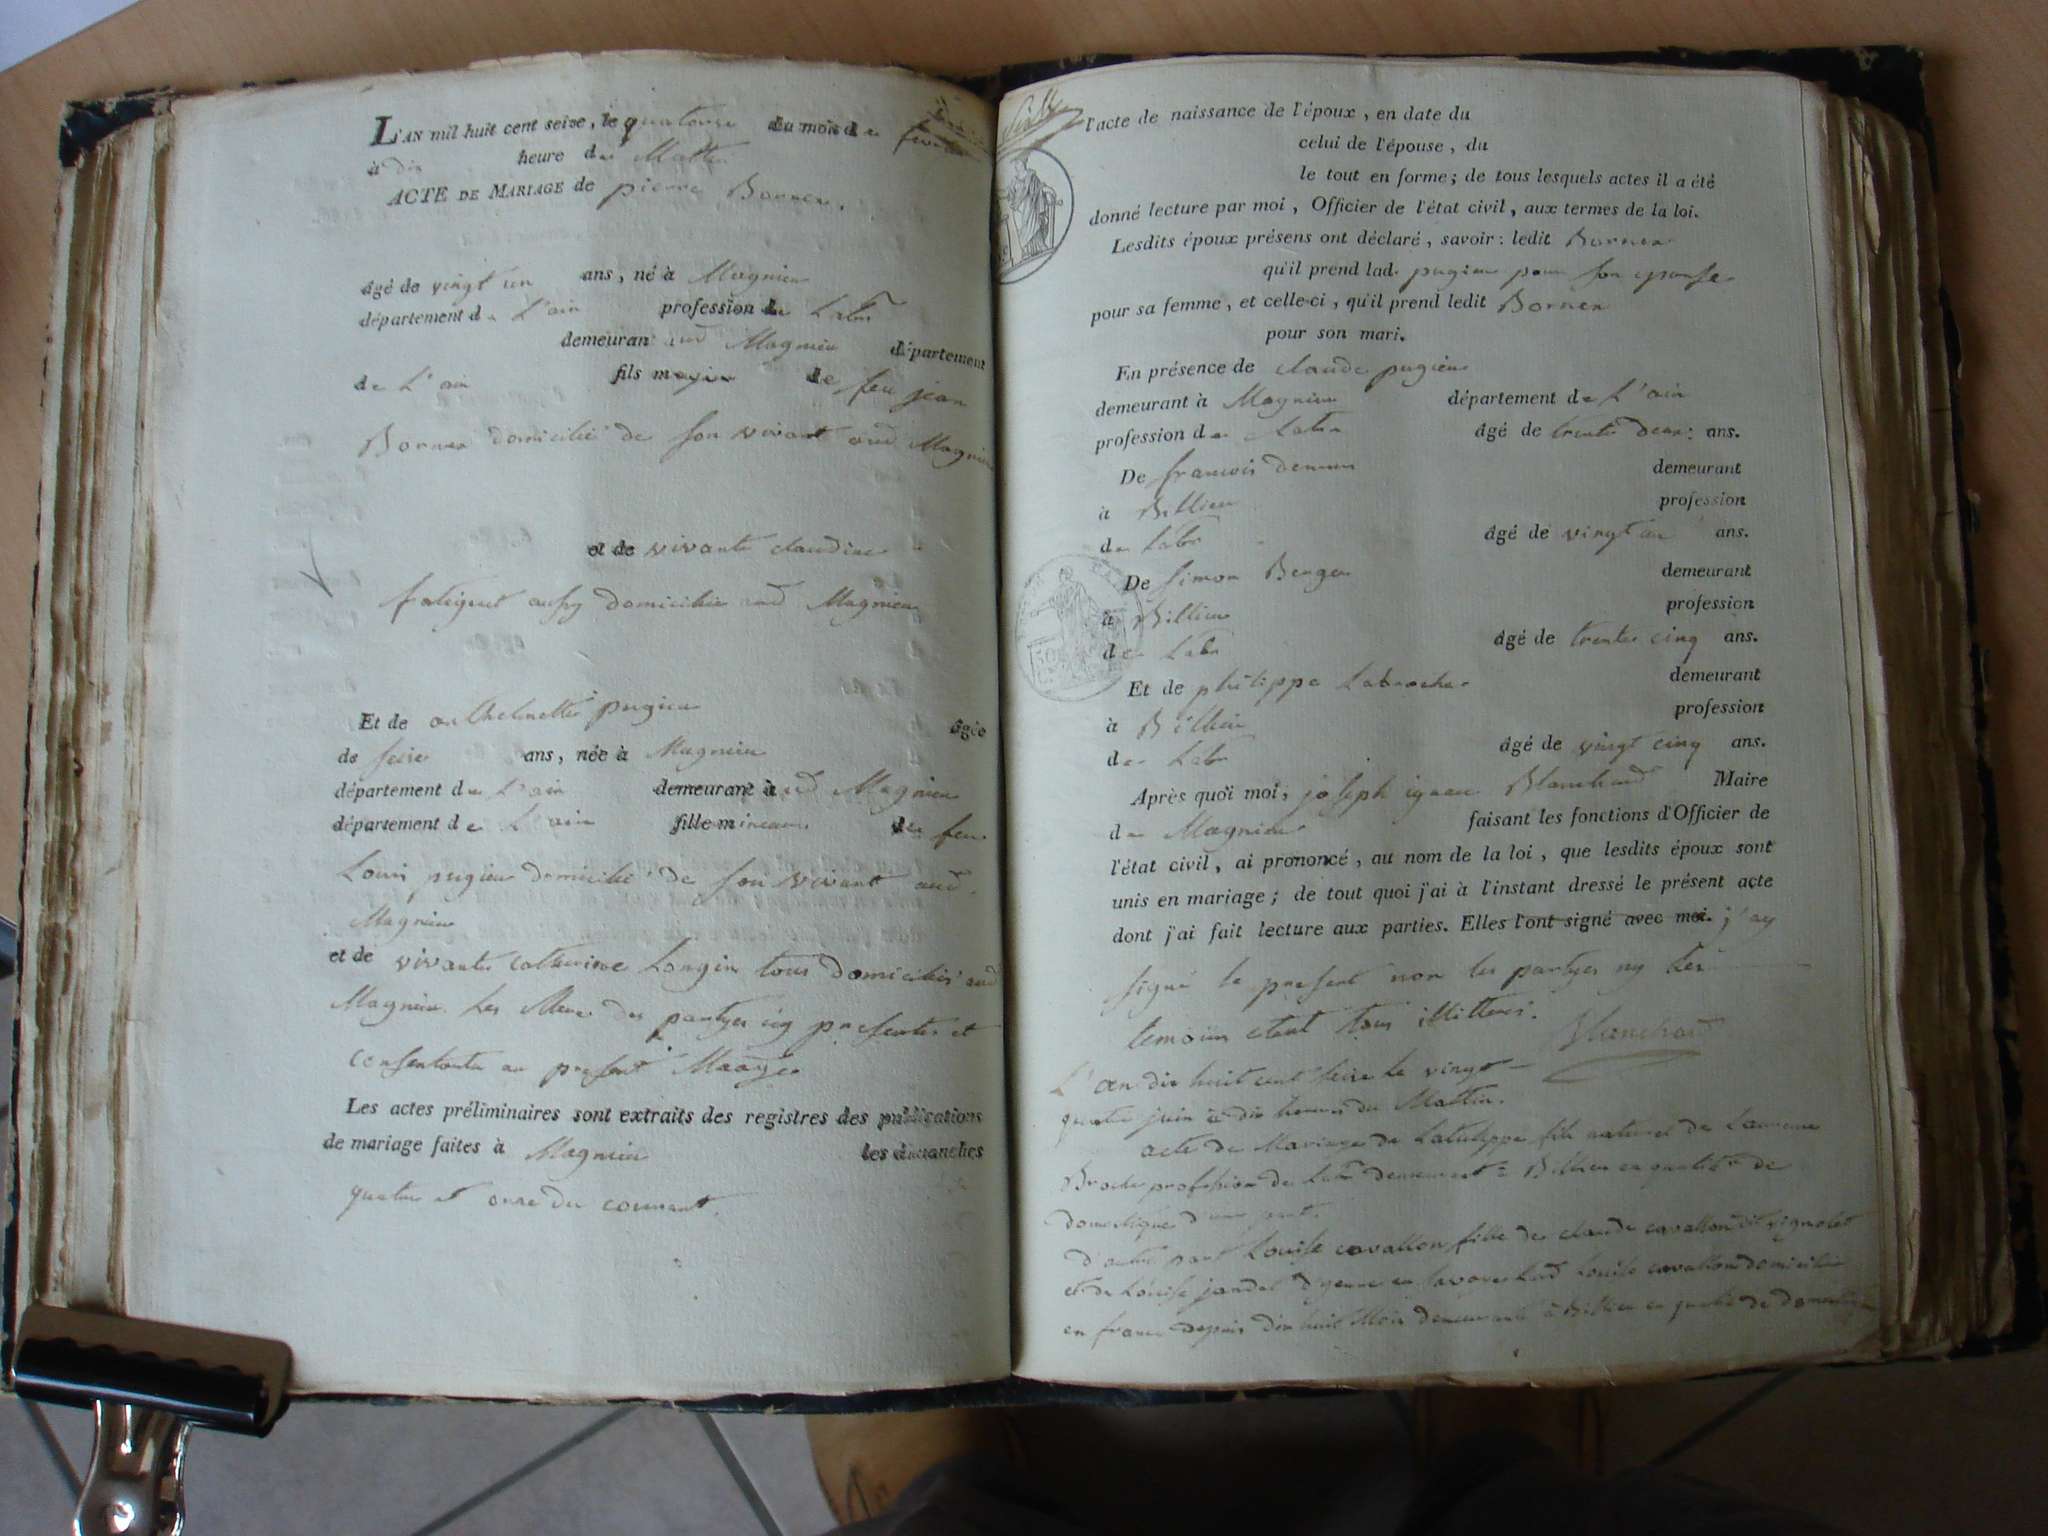 L'AN mil huit cent seize, le quatorze du mois de
à dix heure de Mattin
ACTE DE MARIAGE de pierre Borner.
âgé de vingt un ans, né à Magnieu
département de L'ain profession de Labr
demeurant aud Magnieu département
de L'ain fils majeur de feu jean
Borner domicilié de son vivant aud Magnieu
et de vivante claudine
aussy domiciliée aud Magnieu
Et de anthelmette pugieu âgée
de seize ans, née à Magnieu
département de L'ain demeurant à aud Magnieu
département de L'ain fille mineure de feu
Louis pugieu domicilié de son vivant aud.
Magnieu
et de vivante catherine Longin tous domiciliés aud
Magnieu. Les Mere des partyes icy presentes et
consentante au present Maage
Les actes préliminaires sont extraits des registres des publications
de mariage faites à Magnieu les dimanches
quatre et onze du courant.
l'acte de naissance de l'époux, en date du
celui de l'épouse, du
le tout en forme; de tous lesquels actes il a été
donné lecture par moi, Officier de l'état civil, aux termes de la loi.
Lesdits époux présens ont déclaré, savoir: ledit Borner
qu'il prend lad. pugieu pour son epouse
pour sa femme, et celle-ci, qu'il prend ledit Borner
pour son mari.
En présence de claude pugieu
demeurant à Magnieu département de L'ain
profession de Labr âgé de trente deux ans.
De francois demeurant
à Billieu profession
de Labr âgé de vingt un ans.
De Simon Berger demeurant
à Billieu profession
de Labr âgé de trente cinq ans.
Et de philippe Labroche demeurant
à Billieu profession
de Labr âgé de vingt cinq ans.
Après quoi moi, joseph ignace Blanchard Maire
de Magnieu faisant les fonctions d'Officier de
l'état civil, ai prononcé, au nom de la loi, que lesdits époux sont
unis en mariage; de tout quoi j'ai à l'instant dressé le présent acte
dont j'ai fait lecture aux parties. Elles l'ont signé avec moi. j'ay
signé le present non les partyes ny les
temoins etant tous illitteres.
Blanchard
L'an dix huit cent seize le vingt
quatre juin à dix heures du Mattin.
acte de Mariage de Latulippe fils naturel de Laurence
Broche profession de Labr demeurant à Billieu en qualité de
domestique d'une part.
d'autre part Louise cavallon fille de claude cavallon dit vignolet
et de Louise jandet d'yenne en Savoye Lad Louise cavallon domiciliée
en france depuis dix huit Mois demeurante à Billieu en qualité de domestique